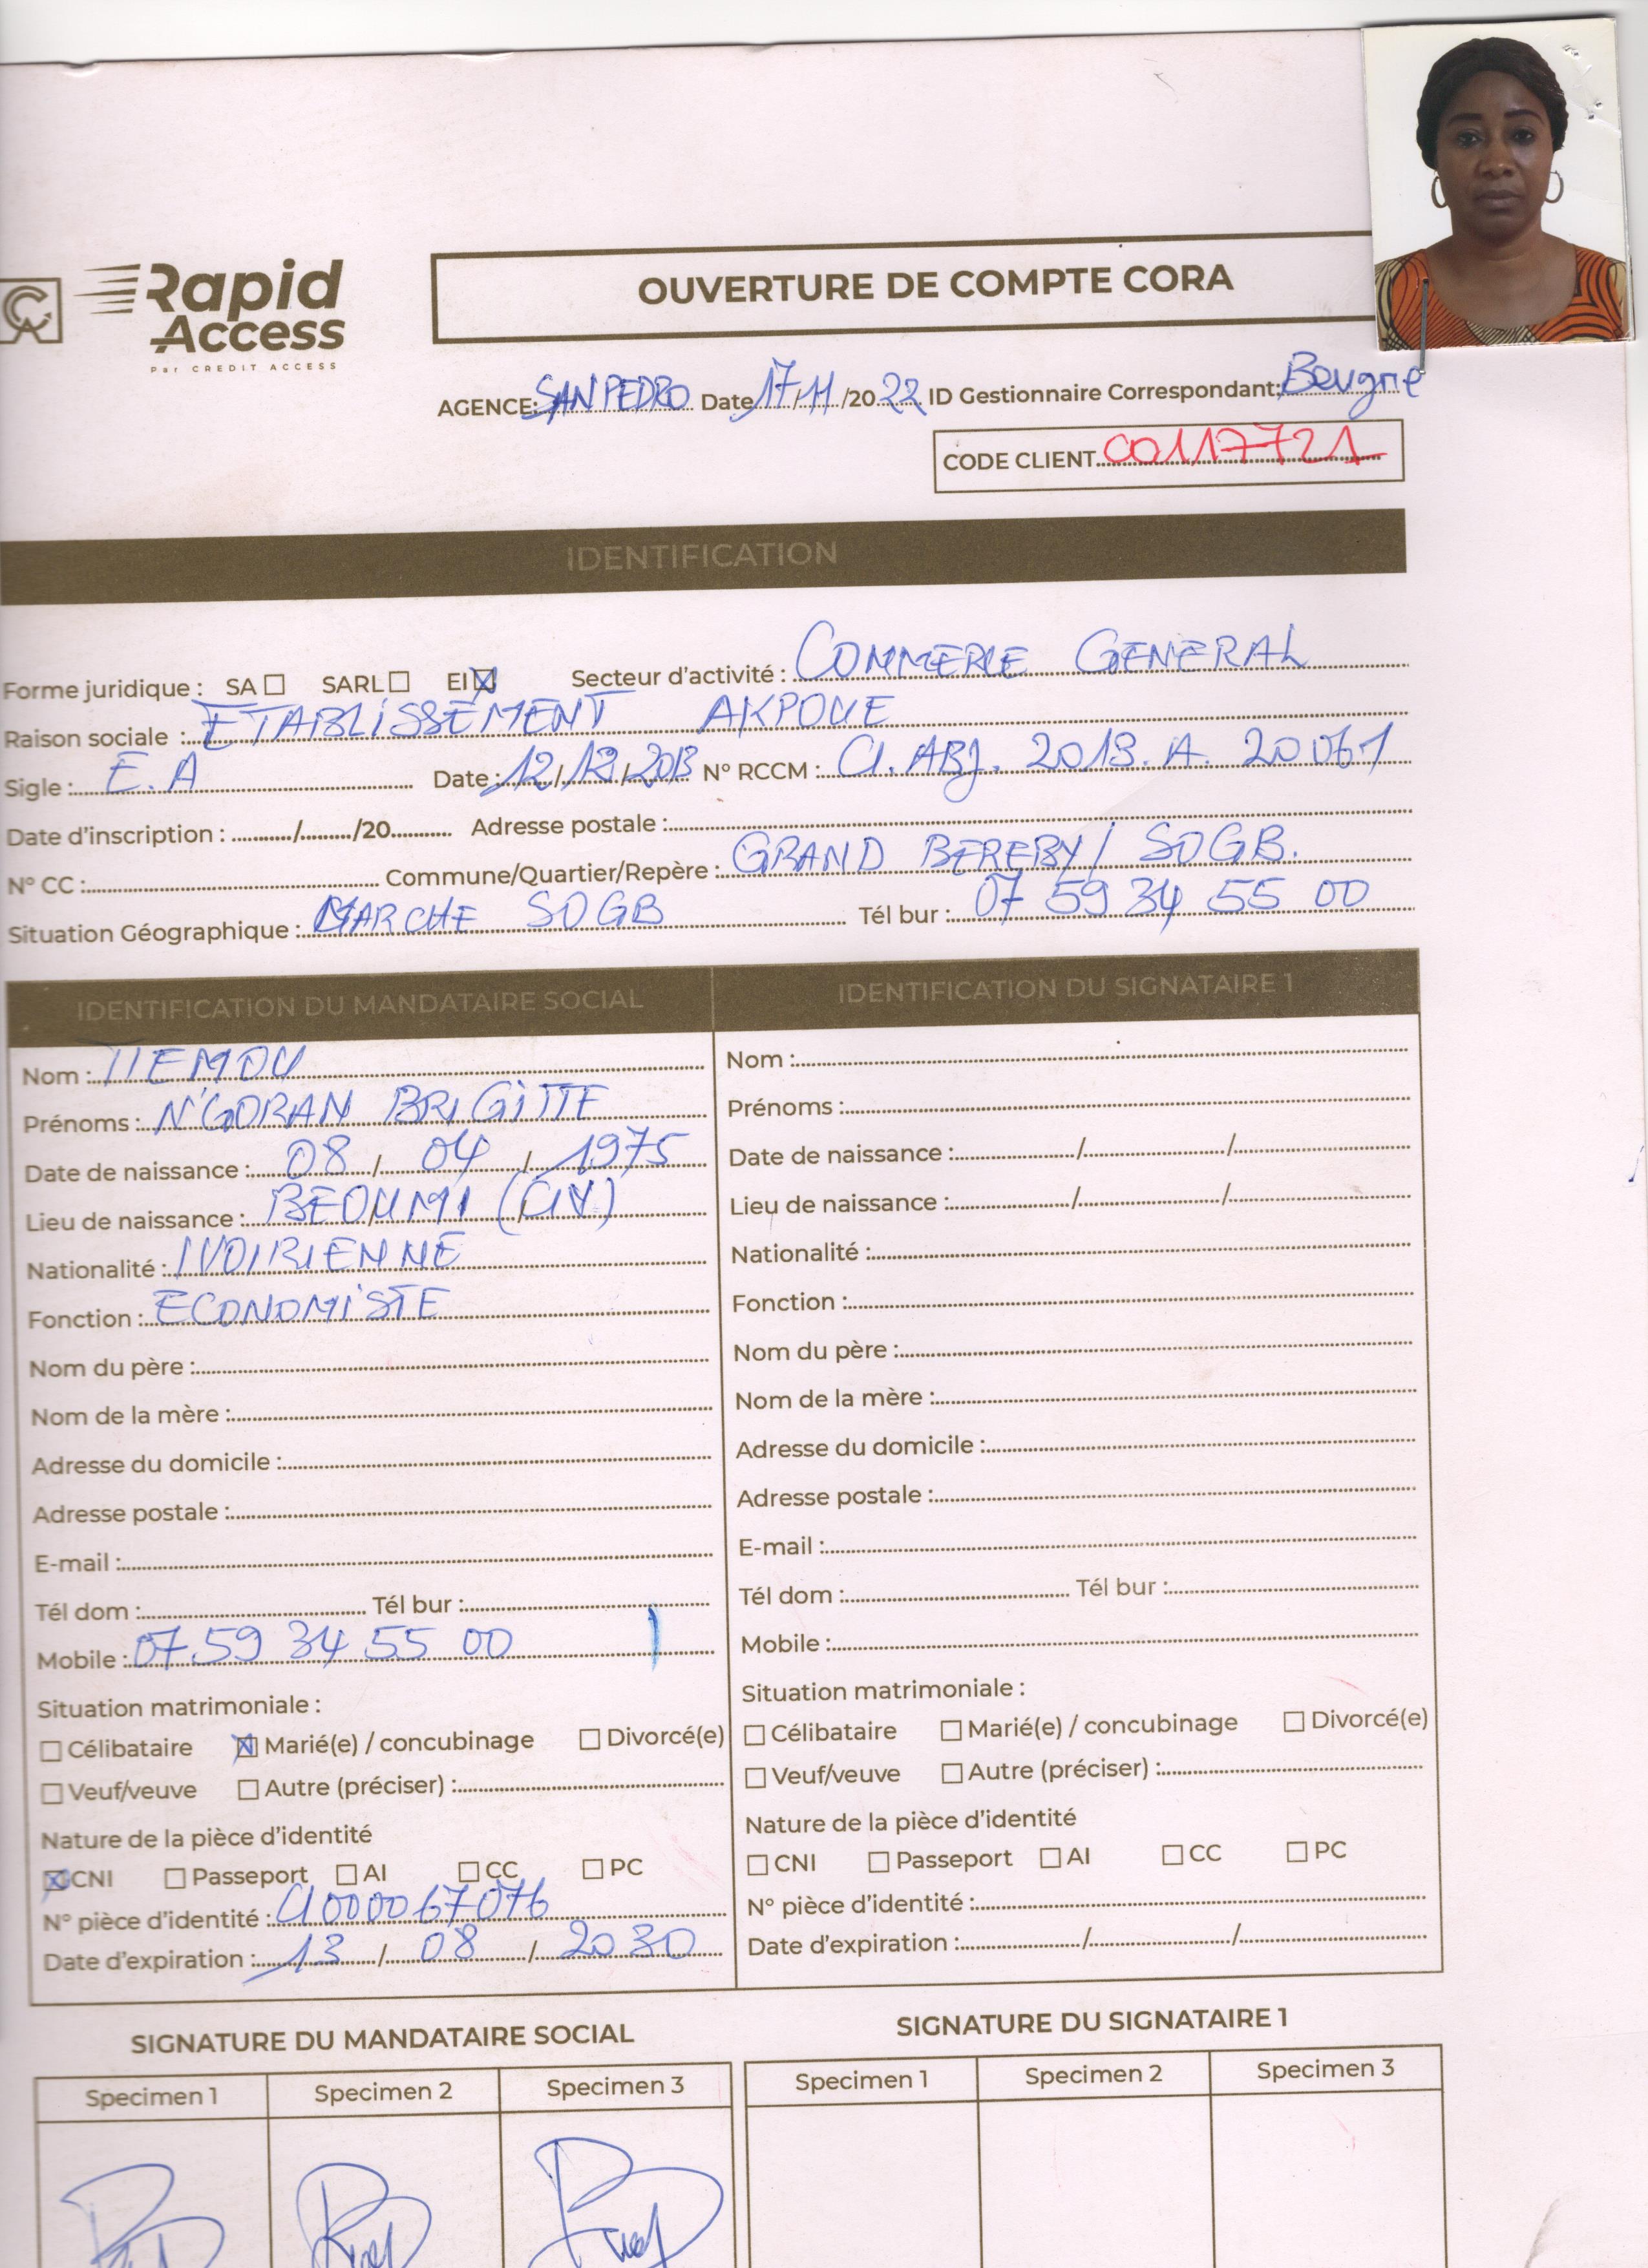 Rapid
Access
Par CREDIT ACCESS
OUVERTURE DE COMPTE CORA
AGENCE: SAN PEDRO Date 17/11/2022 ID Gestionnaire Correspondant: Beugré
CODE CLIENT C0117721
IDENTIFICATION
Forme juridique : SA ☐ SARL ☐ EI ☒ Secteur d'activité : COMMERCE GENERAL
Raison sociale : ETABLISSEMENT AKPOUE
Sigle : E.A Date : 12/12/2013 N° RCCM : CI.ABJ.2013.A.20061
Date d'inscription : ........../........./20........... Adresse postale :
N° CC : Commune/Quartier/Repère : GRAND BEREBY / SOGB.
Situation Géographique : MARCHE SOGB Tél bur : 07 59 34 55 00
IDENTIFICATION DU MANDATAIRE SOCIAL
Nom : TIEMOU
Prénoms : N'GORAN BRIGITTE
Date de naissance : 08 / 04 / 1975
Lieu de naissance : BEOUMI (CIV)
Nationalité : IVOIRIENNE
Fonction : ECONOMISTE
Nom du père :
Nom de la mère :
Adresse du domicile :
Adresse postale :
E-mail :
Tél dom : Tél bur :
Mobile : 07.59 34 55 00
Situation matrimoniale :
☐ Célibataire ☒ Marié(e) / concubinage ☐ Divorcé(e)
☐ Veuf/veuve ☐ Autre (préciser) :
Nature de la pièce d'identité
☒ CNI ☐ Passeport ☐ AI ☐ CC ☐ PC
N° pièce d'identité : CI000067076
Date d'expiration : 13 / 08 / 2030
IDENTIFICATION DU SIGNATAIRE 1
Nom :
Prénoms :
Date de naissance : / /
Lieu de naissance : / /
Nationalité :
Fonction :
Nom du père :
Nom de la mère :
Adresse du domicile :
Adresse postale :
E-mail :
Tél dom : Tél bur :
Mobile :
Situation matrimoniale :
☐ Célibataire ☐ Marié(e) / concubinage ☐ Divorcé(e)
☐ Veuf/veuve ☐ Autre (préciser) :
Nature de la pièce d'identité
☐ CNI ☐ Passeport ☐ AI ☐ CC ☐ PC
N° pièce d'identité :
Date d'expiration : / /
SIGNATURE DU MANDATAIRE SOCIAL
Specimen 1 Specimen 2 Specimen 3
SIGNATURE DU SIGNATAIRE 1
Specimen 1 Specimen 2 Specimen 3